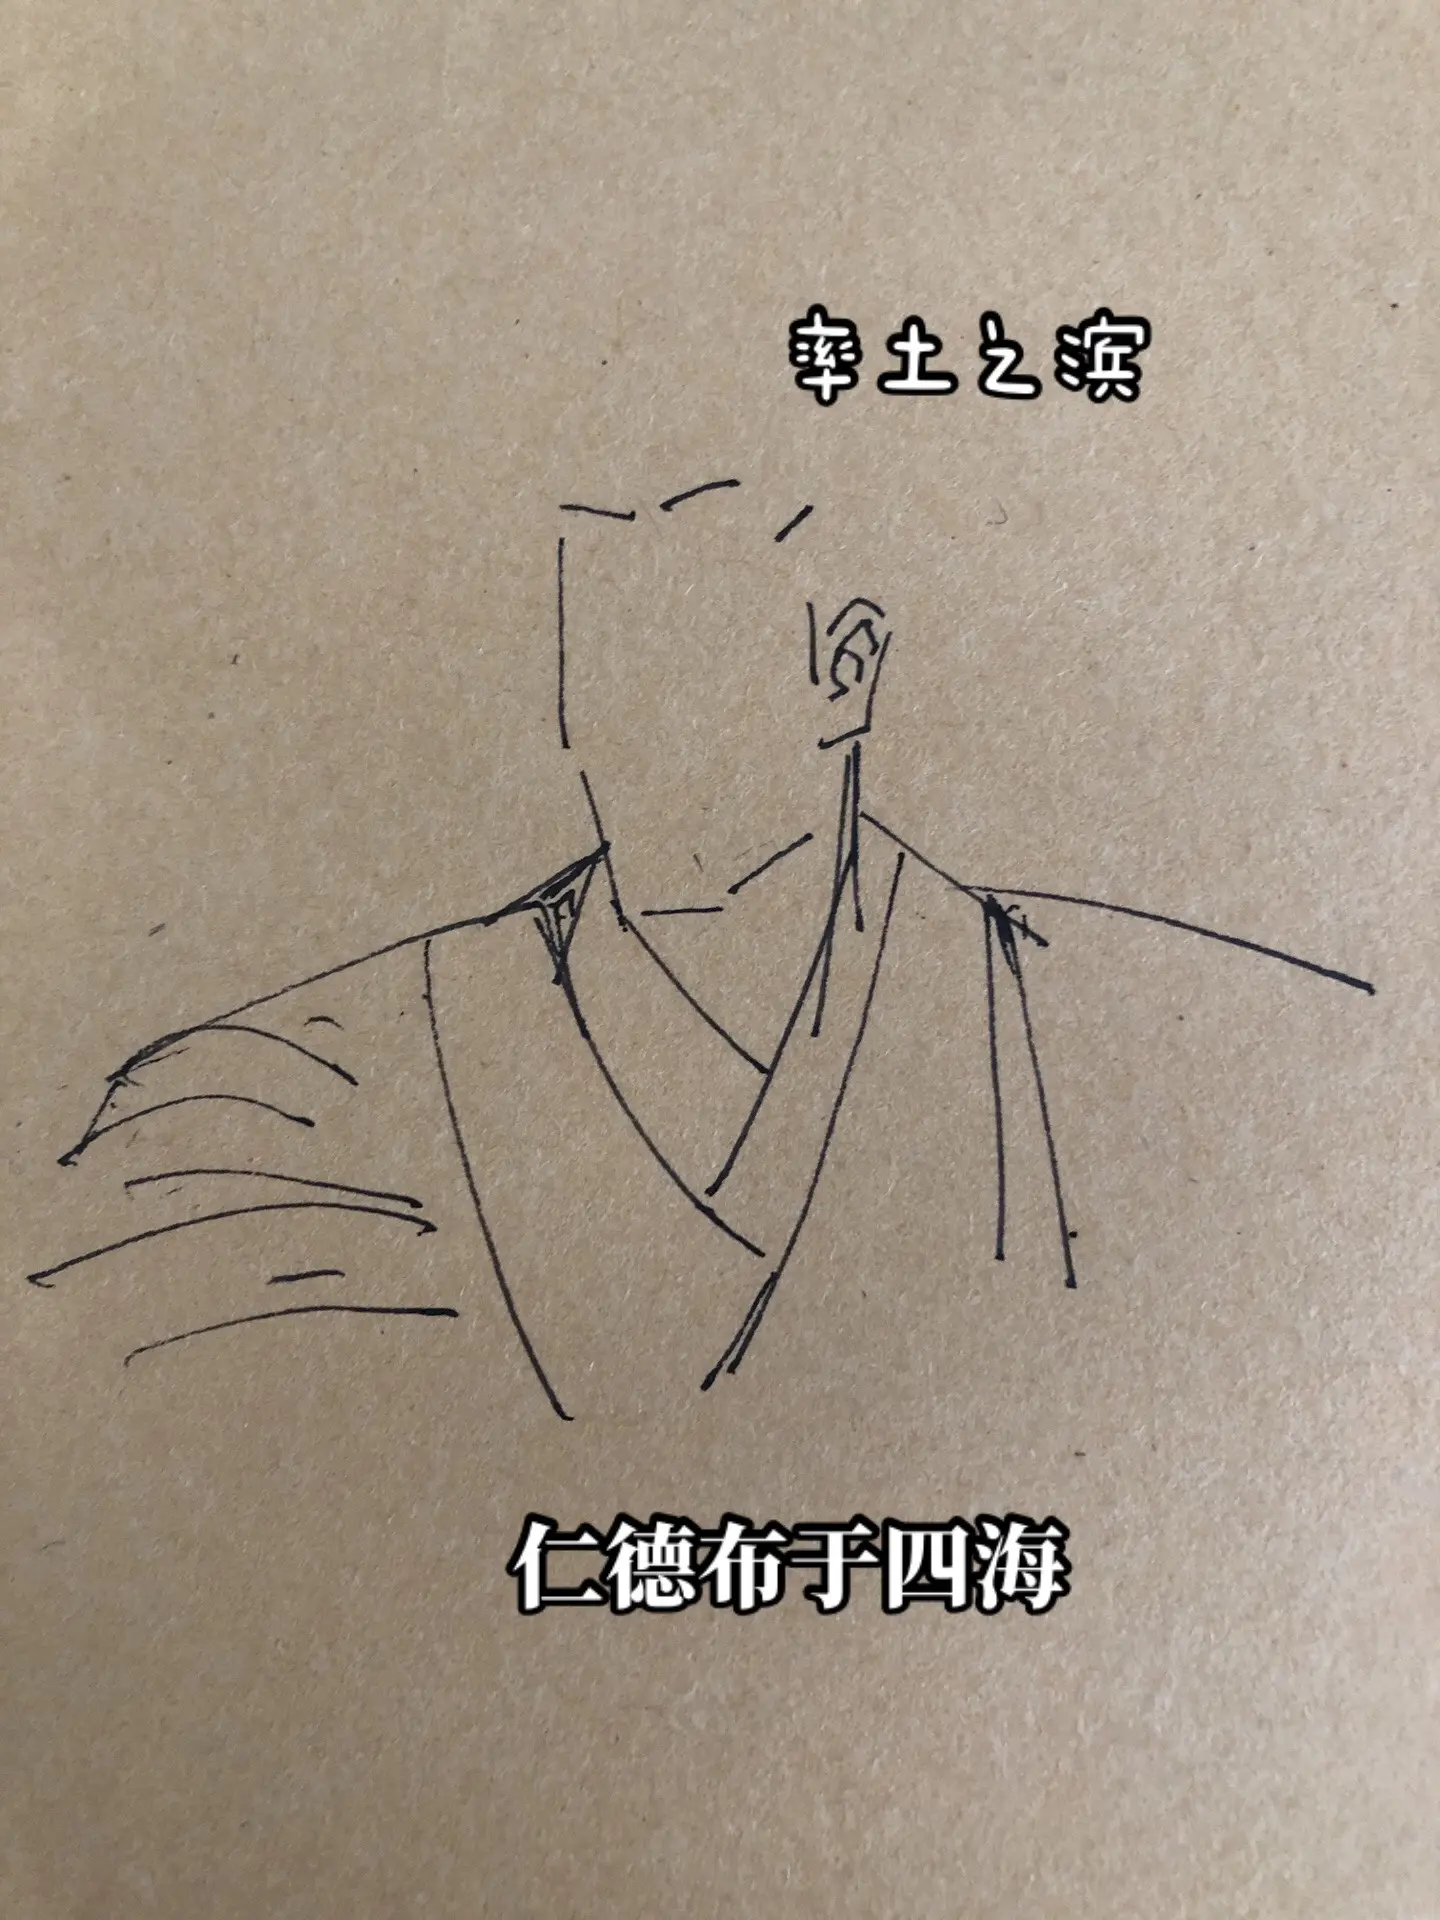 率土之滨
仁德布于四海